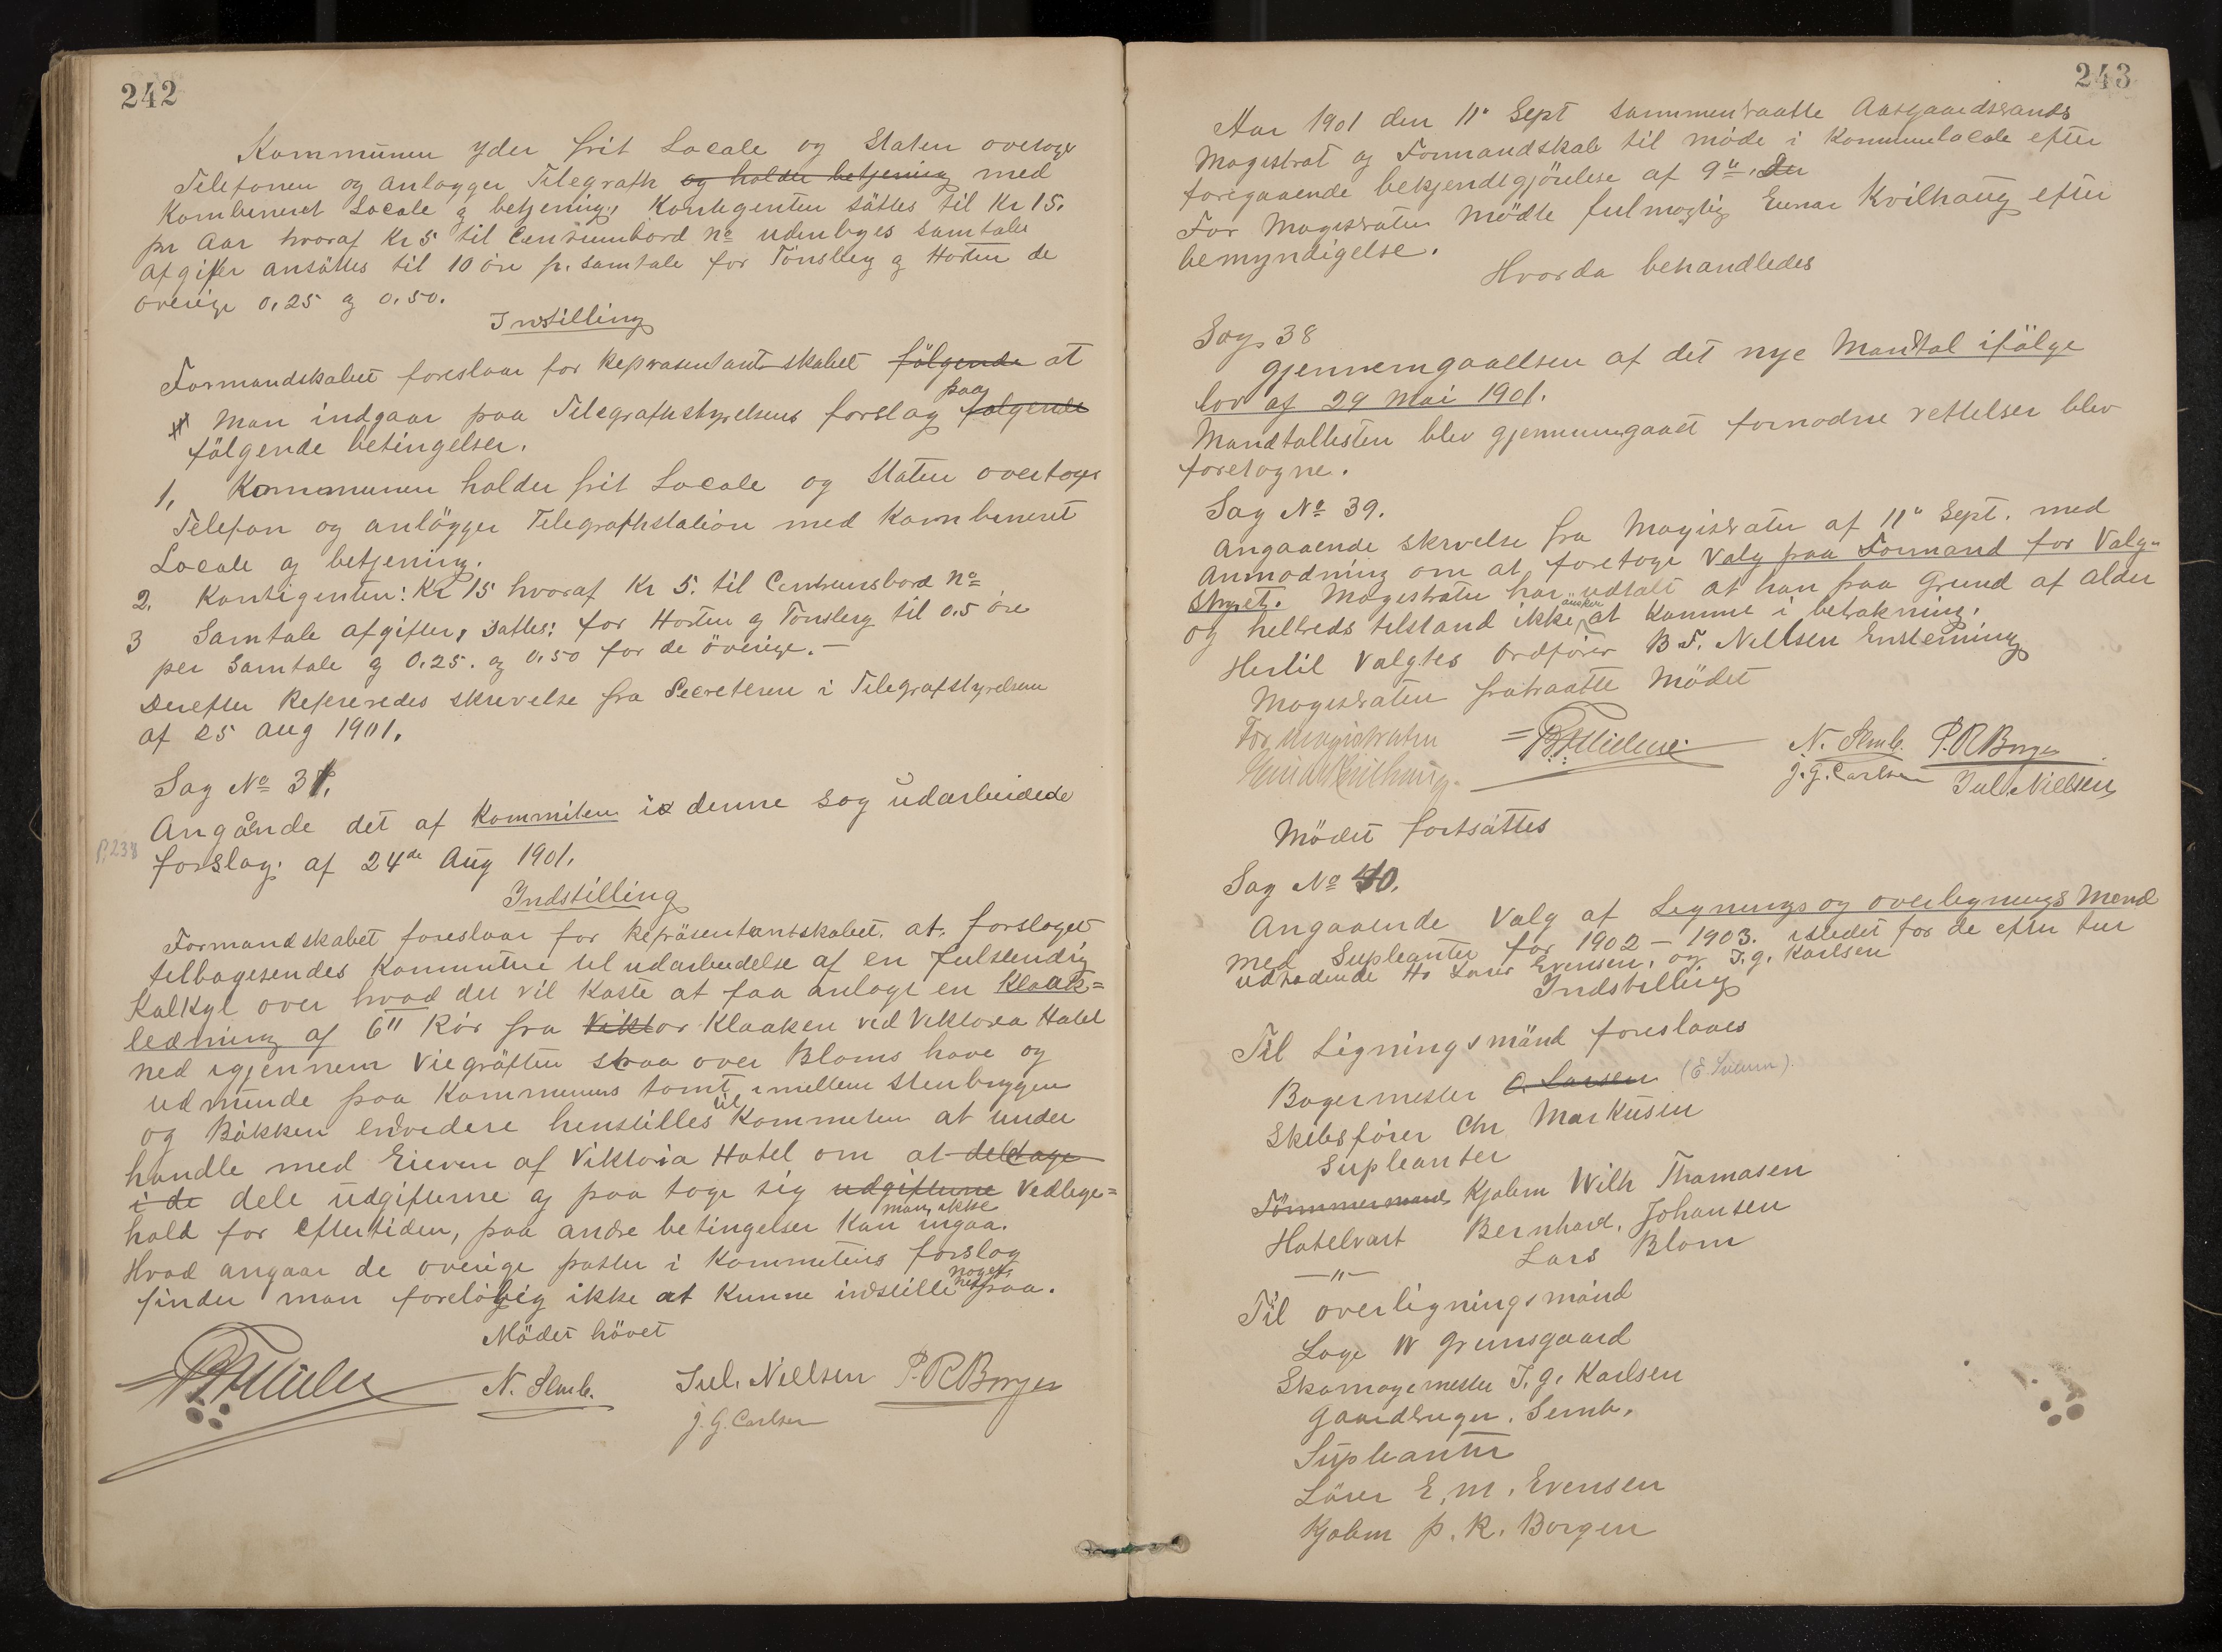 242
Kommunen yder frit Locale og Staten overtoge
Telefonen og anlogger Telegrath og holder betjening med
Kombeneret Locale og betjening, Kontigenten sättes til Kr 15.
pr Aar hvoraf Kr 5 til Centrumbord No udenbyes samtale
afgifter ansättes til 10 öre pr. samtale for Tönsberg og Horten de
överige 0,25 og 0,50.
Instilling
Formandskabet foreslaar for Reprasentantskabet fölgende at
Man indgaar paa Telegrafhstyrelsens forslag fölgende paa
fölgende betingelser.
1, Kommunen holder frit Locale og Staten overtoger
Telefon og anlögger Telegrafhstation med Kombeneret
Locale og betjening.
2. Kontigenten: Kr 15 hvoraf Kr 5. til Centrumsbord No
3 Samtale afgifter, sattes: for Horten og Tonsberg til 0.5 öre
per Samtale og 0.25. og 0,50 for de överige. —
Derefter Refereredes skrivelse fra Secreteren i Telegrafstyrelsen
af 25 aug 1901.
Sag No 37.
Angående det af Kommiteen i denne sag udarbeidede
P. 238
forslag. af 24de Aug 1901.
Indstilling
Formandskabet foreslaar for Repräsentantskabet. at. forslaget
tilbagesendes Kommitene til udarbeidelse af en fulstendig
Kalkyl over hvad det vil Koste at faa anlagt en Kloak=
ledning af 6" Rör fra Viktor Kloaken ved Viktoria Hotel
ned igjennem Viegröften skraa over Bloms have og
udmunde paa Kommunens tomt imellem Stenbryggen
og Bäkken envidere henstilles til Kommiteen at under
handle med Eieren af Viktoria Hotel om at deltage
i de dele udgifterne og paa tage sig udgifterne Vedlige=
hold for eftertiden, paa andre betingelser Kan man ikke ingaa.
Hvad angaar de overige poster i Kommiteens forslag
finder man forelöbig ikke at Kunne indstille noget paa.
Mödet hävet
N. Semb. Jul. Nielsen P. R Borgen
J. G. Carlsen
243
Aar 1901 den 11" Sept sammentraatte Aasgaardstrands
Magistrat og Formandskab til möde i Kommunelocale efter
foregaaende bekjendtgjörelse af 9de. Der
For Magistraten Mödte fulmagtig Einar Kvilhaug efter
bemyndigelse.
Hvorda behandledes
Sag 38
Gjennemgaaelsen af det nye Mantal ifälge
lov af 29 Mai 1901.
Mandtallisten blev gjennemgaaet fornodne rettelser blev
foretagne.
Sag No 39.
Angaaende skrivelse fra Magistraten af 11" Sept. med
Anmodning om at foretage Valg paa Formand for Valg-
styret. Magistraten har udtalt at han paa Grund af alder
og helbreds tilstand ikke önsker at komme i betrakning.
Hertil Valgtes Ordförer B F. Nielsen Enstemmig
Magistraten fratraatte Mödet
For magistraten
Einar Kvilhaug.
N. Semb. P. R Borgen
J. G. Carlsen Jul. Nielsen
Mödet fortsättes
Sag No 40.
Angaaende Valg af Lignings og overlignings Mend
med Supleanter for 1902 – 1903. istedet for de efter tur
udtrædende Hr Lärer Evensen, og J. G. Karlsen
Indstilling
Til Ligningsmänd foreslaaes
Bagermester C. Larsen
Skibsförer Chr Markusen
Supleanter
Tömmermand Kjøbm Wilh Thomasen
Hotelvärt Bernhard. Johansen
—"— Lars Blom
Til overligningsmänd
Loge W Grunsgaard
Skomagermester J. G. Karlsen
Gaardbruger. Semb.
Supleanter
Lärer E. M. Evensen
Kjøbm P. R. Borgen